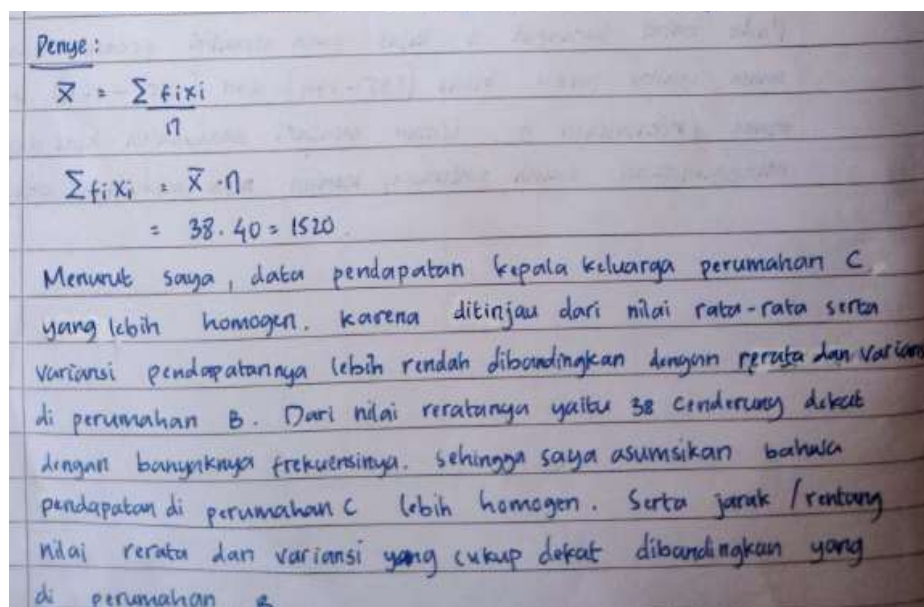 Penye :
x̄ = ∑ fixi
n
∑ fi xi = x̄ . n
= 38 . 40 = 1520.
Menurut saya, data pendapatan kepala keluarga perumahan C
yang lebih homogen. karena ditinjau dari nilai rata-rata serta
variansi pendapatannya lebih rendah dibandingkan dengan rerata dan varian
di perumahan B. Dari nilai reratanya yaitu 38 cenderung dekat
dengan banyaknya frekuensinya. sehingga saya asumsikan bahwa
pendapatan di perumahan C lebih homogen. Serta jarak / rentang
nilai rerata dan variansi yang cukup dekat dibandingkan yang
di perumahan B